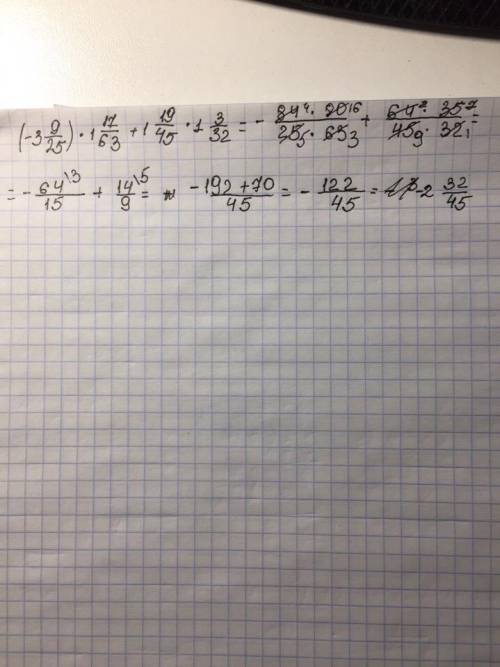 (-3 9/25) · 1 17/63 + 1 19/45 · 1 3/32 = - 84⁴ · 80¹⁶ / 25₅ · 63₃ + 64² · 35⁷ / 45₉ · 32₁ =
= - 64\³/15 + 14\⁵/9 = -192+70/45 = - 122/45 = -2 32/45